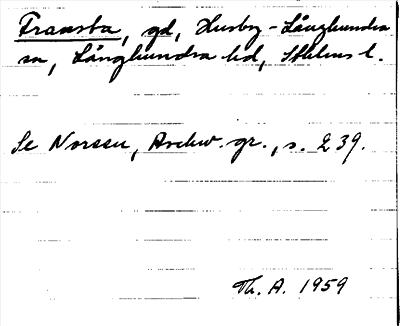 Fransta, gd, Husby-Långhundra
sn, Långhundra hd, Sthlms l.
Se Norssen, Archiv. gr., s. 239.
Th. A. 1959